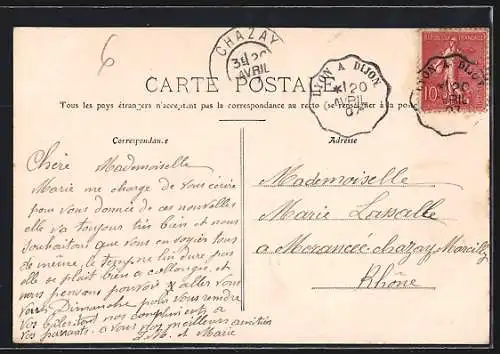 6
CHAZAY
3E 20
AVRIL
LYON A DIJON
*1 20
AVRIL
07
REPUBLIQUE FRANÇAISE
10
LYON A DIJON
*1 20
AVRIL
07
CARTE POSTALE
Tous les pays étrangers n'acceptant pas la correspondance au recto (se renseigner à la poste
Correspondance
Adresse
Chère Mademoiselle
Marie me charge de vous écrire
pour vous donnée de ces nouvelles
elle va toujour très bien et nous
souhaitons que vous en soyiez tous
de même, le temp ne lui dure pas
elle se plait bien a collonges, et
nous pensons pouvoir aller vous
voir Dimanche pour vous rendre
vos
nos compliments a
vos parrants. a vous nos meilleurs amitiés
et Marie
Mademoiselle
Marie Lassalle
a Morancée chazay Marcilly
Rhône